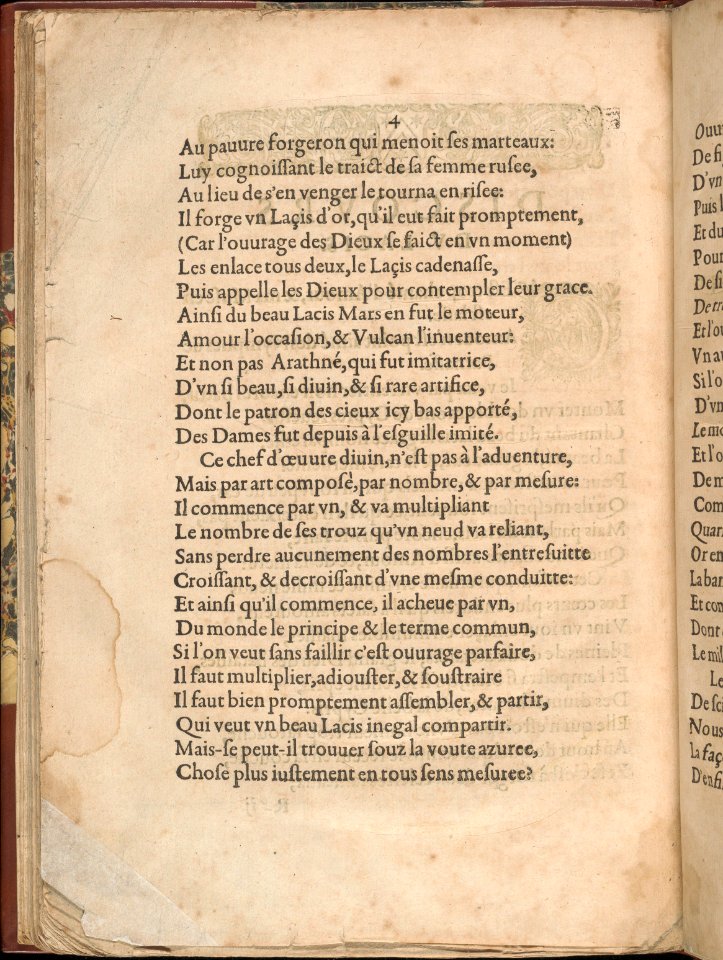 4
Au pauure forgeron qui menoit ſes marteaux:
Luy cognoiſſant le traict de ſa femme ruſee,
Au lieu de s'en venger le tourna en riſee:
Il forge vn Laçis d'or, qu'il eut fait promptement,
(Car l'ouurage des Dieux ſe faict en vn moment)
Les enlace tous deux, le Laçis cadenaſſe,
Puis appelle les Dieux pour contempler leur grace.
Ainſi du beau Lacis Mars en fut le moteur,
Amour l'occaſion, & Vulcan l'inuenteur:
Et non pas Arathné, qui fut imitatrice,
D'vn ſi beau, ſi diuin, & ſi rare artifice,
Dont le patron des cieux icy bas apporté,
Des Dames fut depuis à l'eſguille imité.
Ce chef d'œuure diuin, n'eſt pas à l'aduenture,
Mais par art compoſé, par nombre, & par meſure:
Il commence par vn, & va multipliant
Le nombre de ſes trouz qu'vn neud va reliant,
Sans perdre aucunement des nombres l'entreſuitte
Croiſſant, & decroiſſant d'vne meſme conduitte:
Et ainſi qu'il commence, il acheue par vn,
Du monde le principe & le terme commun,
Si l'on veut ſans faillir c'eſt ouurage parfaire,
Il faut multiplier, adiouſter, & ſouſtraire
Il faut bien promptement aſſembler, & partir,
Qui veut vn beau Lacis inegal compartir.
Mais-ſe peut-il trouuer ſouz la voute azuree,
Choſe plus iuſtement en tous ſens meſuree?